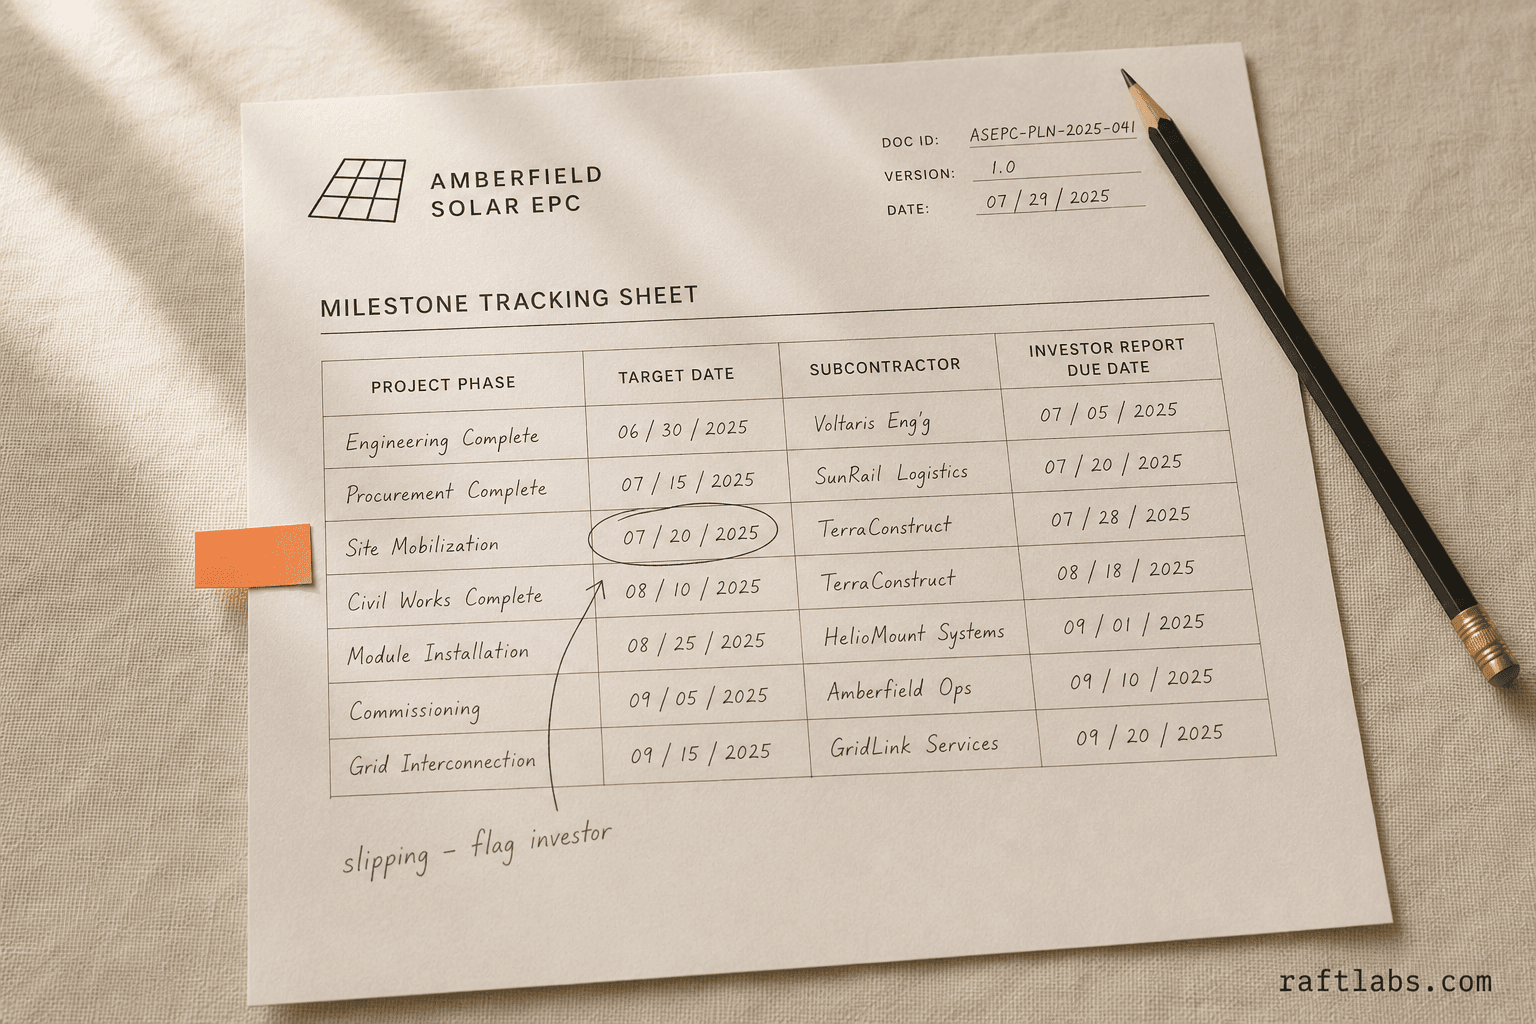 AMBERFIELD
SOLAR EPC
DOC ID: ASEPC-PLN-2025-041
VERSION: 1.0
DATE: 07 / 29 / 2025
MILESTONE TRACKING SHEET
PROJECT PHASE TARGET DATE SUBCONTRACTOR INVESTOR REPORT DUE DATE
Engineering Complete 06 / 30 / 2025 Voltaris Eng'g 07 / 05 / 2025
Procurement Complete 07 / 15 / 2025 SunRail Logistics 07 / 20 / 2025
Site Mobilization 07 / 20 / 2025 TerraConstruct 07 / 28 / 2025
Civil Works Complete 08 / 10 / 2025 TerraConstruct 08 / 18 / 2025
Module Installation 08 / 25 / 2025 HelioMount Systems 09 / 01 / 2025
Commissioning 09 / 05 / 2025 Amberfield Ops 09 / 10 / 2025
Grid Interconnection 09 / 15 / 2025 GridLink Services 09 / 20 / 2025
slipping – flag investor
raftlabs.com